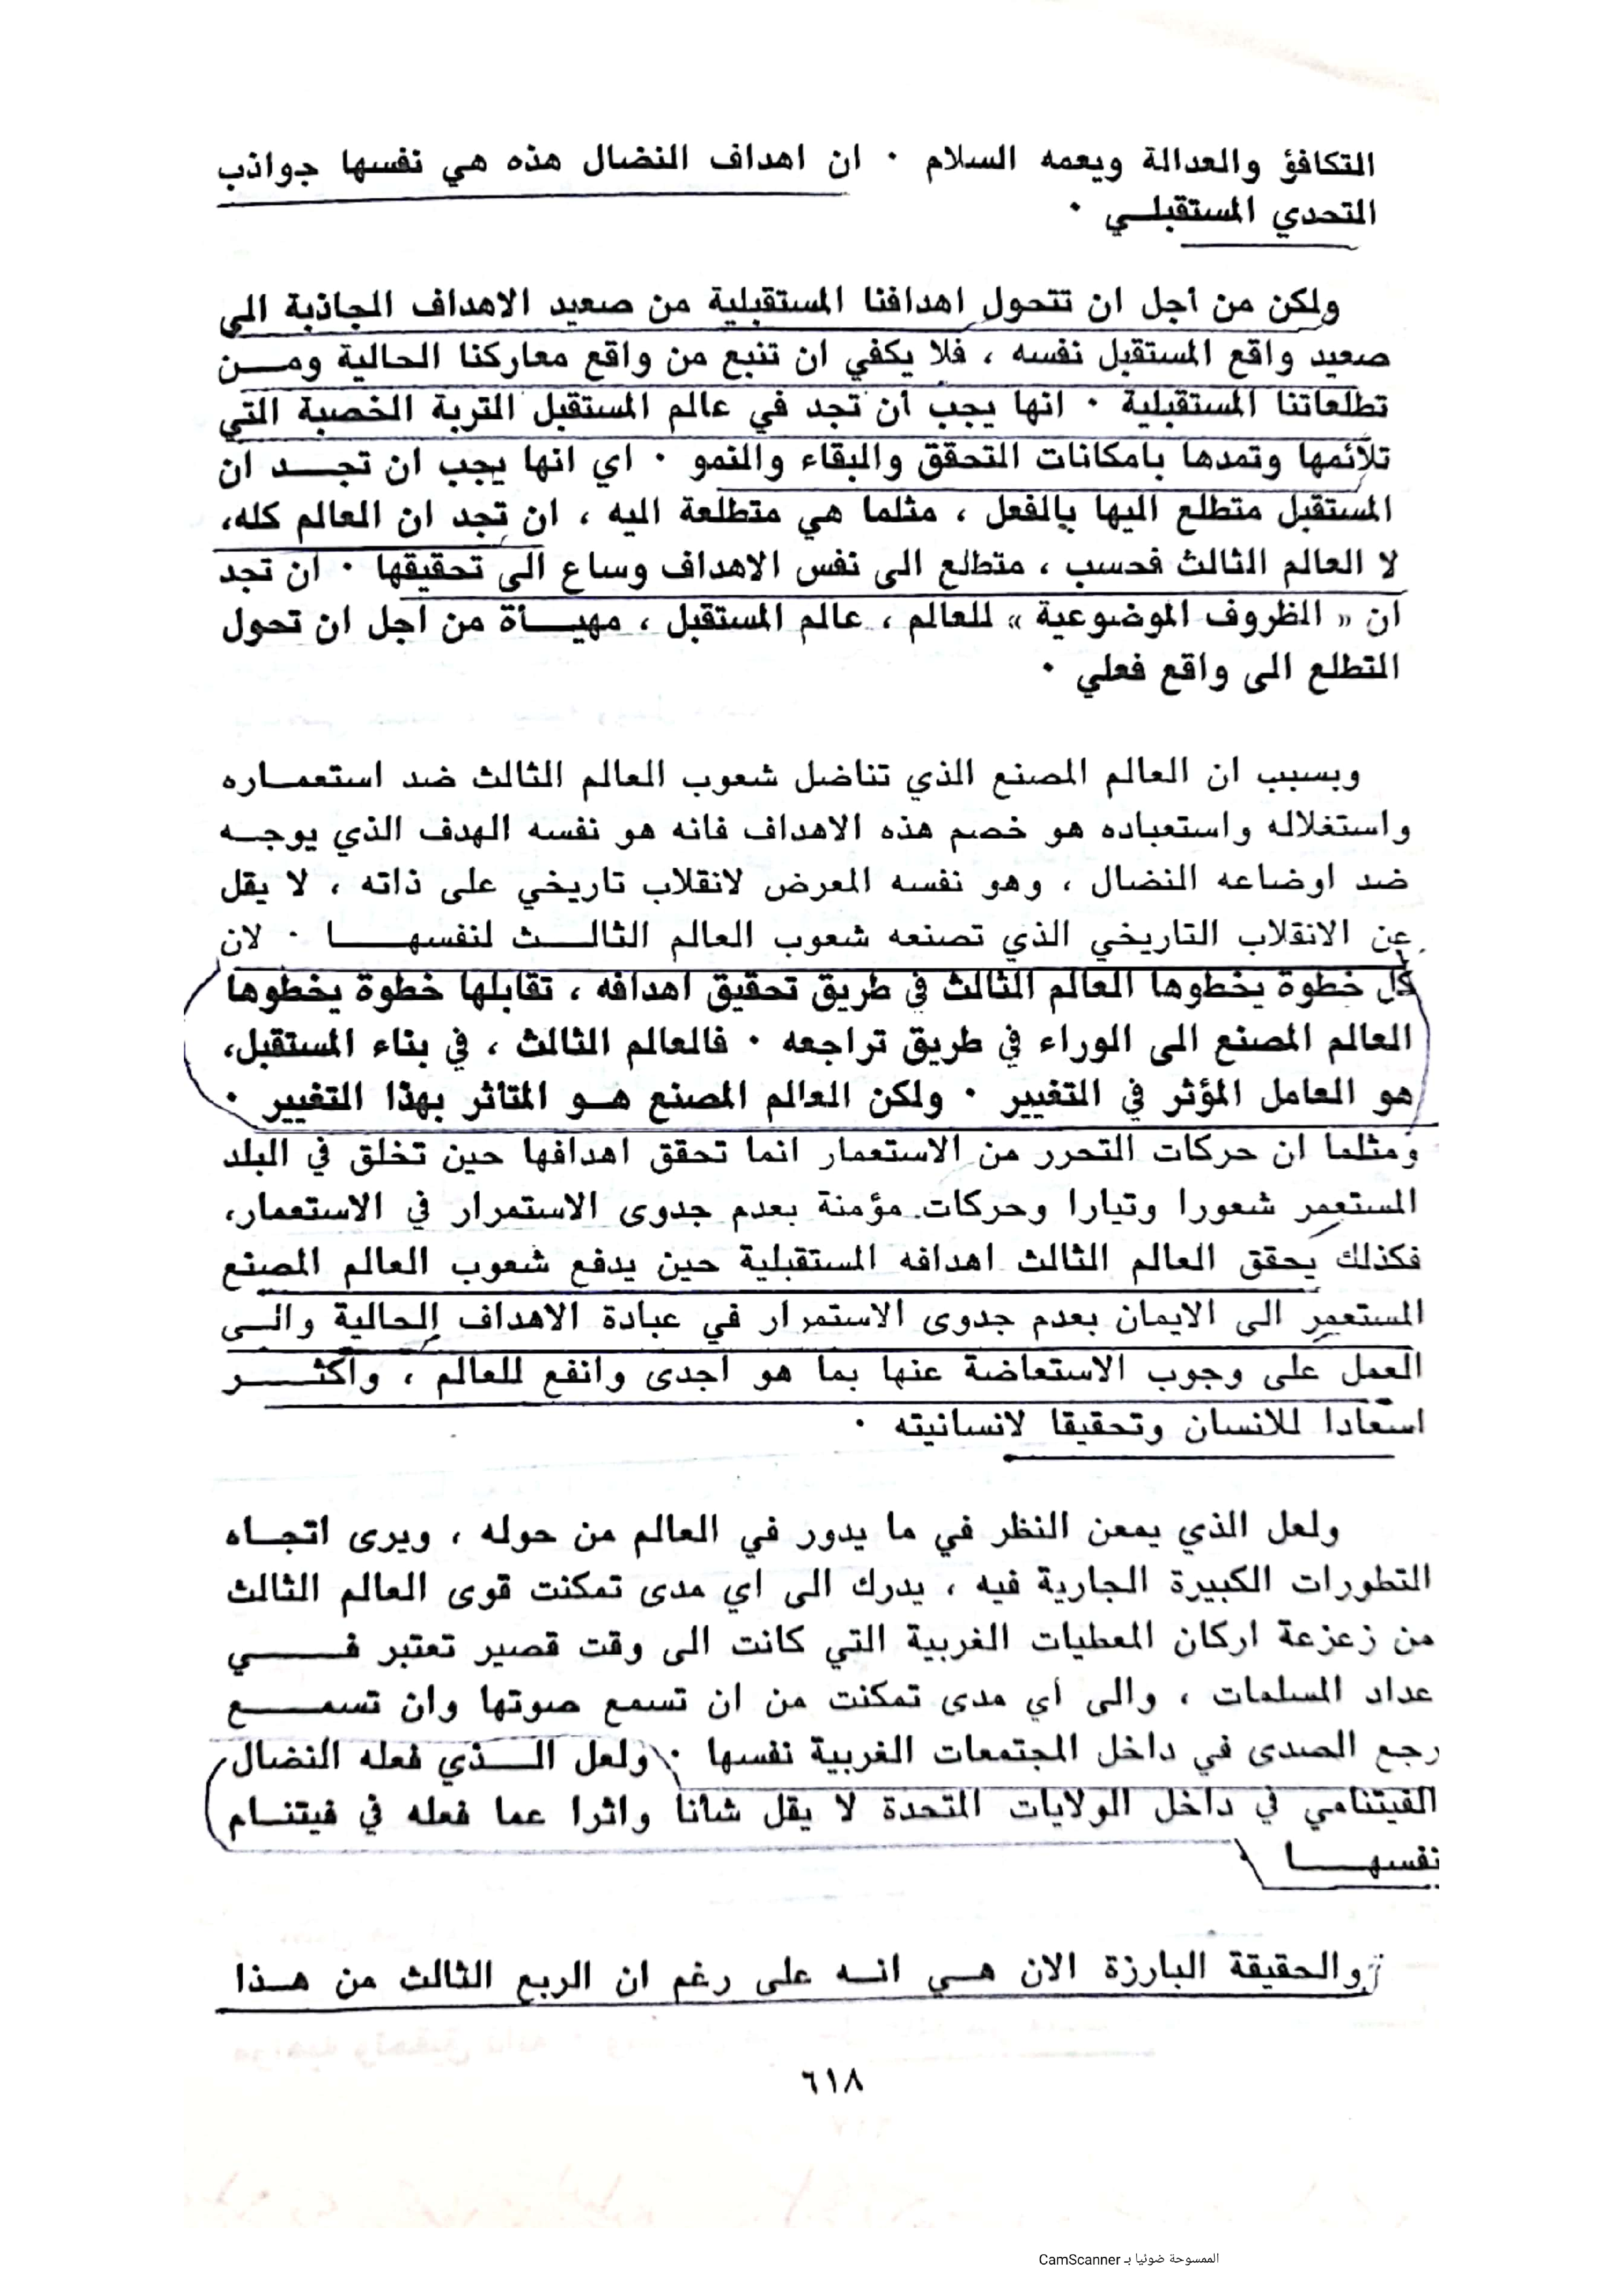 التكافؤ والعدالة ويعمه السلام ٠ ان اهداف النضال هذه هي نفسها جواذب
التحدي المستقبلـي ٠
ولكن من أجل ان تتحول اهدافنا المستقبلية من صعيد الاهداف الجاذبة الى
صعيد واقع المستقبل نفسه ، فلا يكفي ان تنبع من واقع معاركنا الحالية ومـن
تطلعاتنا المستقبلية ٠ انها يجب ان تجد في عالم المستقبل التربة الخصبة التي
تلائمها وتمدها بامكانات التحقق والبقاء والنمو ٠ اي انها يجب ان تجـد ان
المستقبل متطلع اليها بالفعل ، مثلما هي متطلعة اليه ، ان تجد ان العالم كله،
لا العالم الثالث فحسب ، متطلع الى نفس الاهداف وساع الى تحقيقها ٠ ان تجد
ان « الظروف الموضوعية » للعالم ، عالم المستقبل ، مهيـأة من اجل ان تحول
التطلع الى واقع فعلي ٠
وبسبب ان العالم المصنع الذي تناضل شعوب العالم الثالث ضد استعمـاره
واستغلاله واستعباده هو خصم هذه الاهداف فانه هو نفسه الهدف الذي يوجـه
ضد اوضاعه النضال ، وهو نفسه المعرض لانقلاب تاريخي على ذاته ، لا يقل
عن الانقلاب التاريخي الذي تصنعه شعوب العالم الثالـث لنفسهـا ٠ لان
كل خطوة يخطوها العالم الثالث في طريق تحقيق اهدافه ، تقابلها خطوة يخطوها
العالم المصنع الى الوراء في طريق تراجعه ٠ فالعالم الثالث ، في بناء المستقبل،
هو العامل المؤثر في التغيير ٠ ولكن العالم المصنع هـو المتاثر بهذا التغيير ٠
ومثلما ان حركات التحرر من الاستعمار انما تحقق اهدافها حين تخلق في البلد
المستعمر شعورا وتيارا وحركات مؤمنة بعدم جدوى الاستمرار في الاستعمار،
فكذلك يحقق العالم الثالث اهدافه المستقبلية حين يدفع شعوب العالم المصنع
المستعمر الى الايمان بعدم جدوى الاستمرار في عبادة الاهداف الحالية والـى
العمل على وجوب الاستعاضة عنها بما هو اجدى وانفع للعالم ، واكثـر
اسعادا للانسان وتحقيقا لانسانيته ٠
ولعل الذي يمعن النظر في ما يدور في العالم من حوله ، ويرى اتجـاه
التطورات الكبيرة الجارية فيه ، يدرك الى اي مدى تمكنت قوى العالم الثالث
من زعزعة اركان المعطيات الغربية التي كانت الى وقت قصير تعتبر فـي
عداد المسلمات ، والى أي مدى تمكنت من ان تسمع صوتها وان تسمـع
رجع الصدى في داخل المجتمعات الغربية نفسها ٠ ولعل الـذي فعله النضال
الفيتنامي في داخل الولايات المتحدة لا يقل شأنا واثرا عما فعله في فيتنـام
نفسهـا
والحقيقة البارزة الان هـي انـه على رغم ان الربع الثالث من هـذا
٦١٨
الممسوحة ضوئيا بـ CamScanner